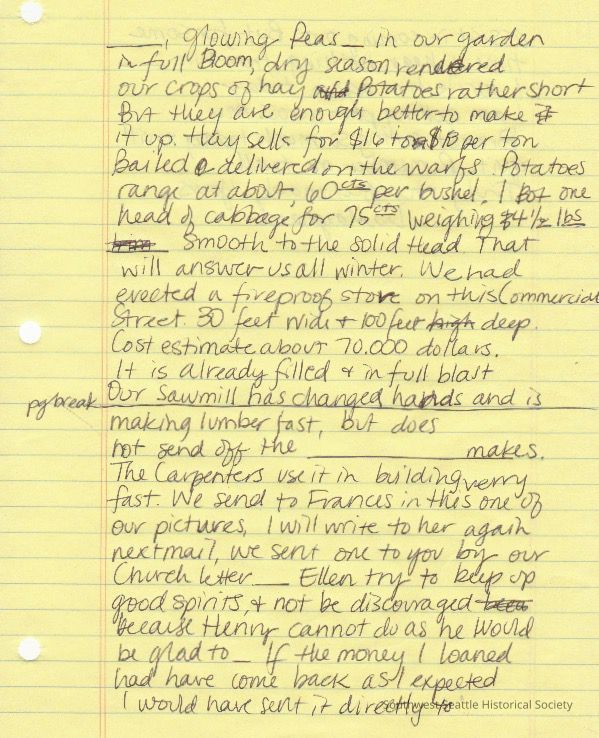 ____, glowing Peas _ in our garden
in full Bloom, dry season rendered
our crops of hay and Potatoes rather short
But they are enough better to make it
it up. Hay sells for $16 to $18 per ton
Bailed & delivered on the warfs. Potatoes
range at about, 60 cts per bushel. I Bot one
head of cabbage for 75 cts weighing 44 1/2 lbs
Smooth to the solid Head. That
will answer us all winter. We had
erected a fireproof store on this Commercial
Street. 30 feet wide + 100 feet high deep.
Cost estimate about 70.000 dollars.
It is already filled & in full blast
pg break Our Sawmill has changed hands and is
making lumber fast, but does
not send off the ____________ makes.
The Carpenters use it in building verry
fast. We send to Frances in this one of
our pictures, I will write to her again
next mail, we sent one to you by our
Church letter ___ Ellen try to keep up
good spirits, & not be discouraged been
because Henry cannot do as he would
be glad to _ If the money I loaned
had have come back as I expected
I would have sent it directly to
Southwest Seattle Historical Society